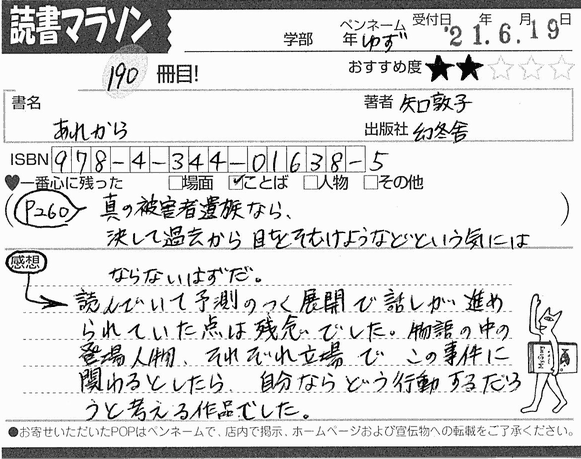 読書マラソン
学部 年 ペンネーム ゆず 受付日 '21年6月19日
190 冊目! おすすめ度 ★★☆☆☆
書名 あれから 著者 矢口敦子
出版社 幻冬舎
ISBN 978-4-344-01638-5
♥一番心に残った □場面 ☑ことば □人物 □その他
(P260) 真の被害者遺族なら、
決して過去から目をそむけようなどという気には
ならないはずだ。
感想
読んでいて予測のつく展開で話しが進め
られていた点は残念でした。物語の中の
登場人物、それぞれ立場で この事件に
関わるとしたら、自分ならどう行動するだろ
うと考える作品でした。
●お寄せいただいたPOPはペンネームで、店内で掲示、ホームページおよび宣伝物への転載をご了承ください。